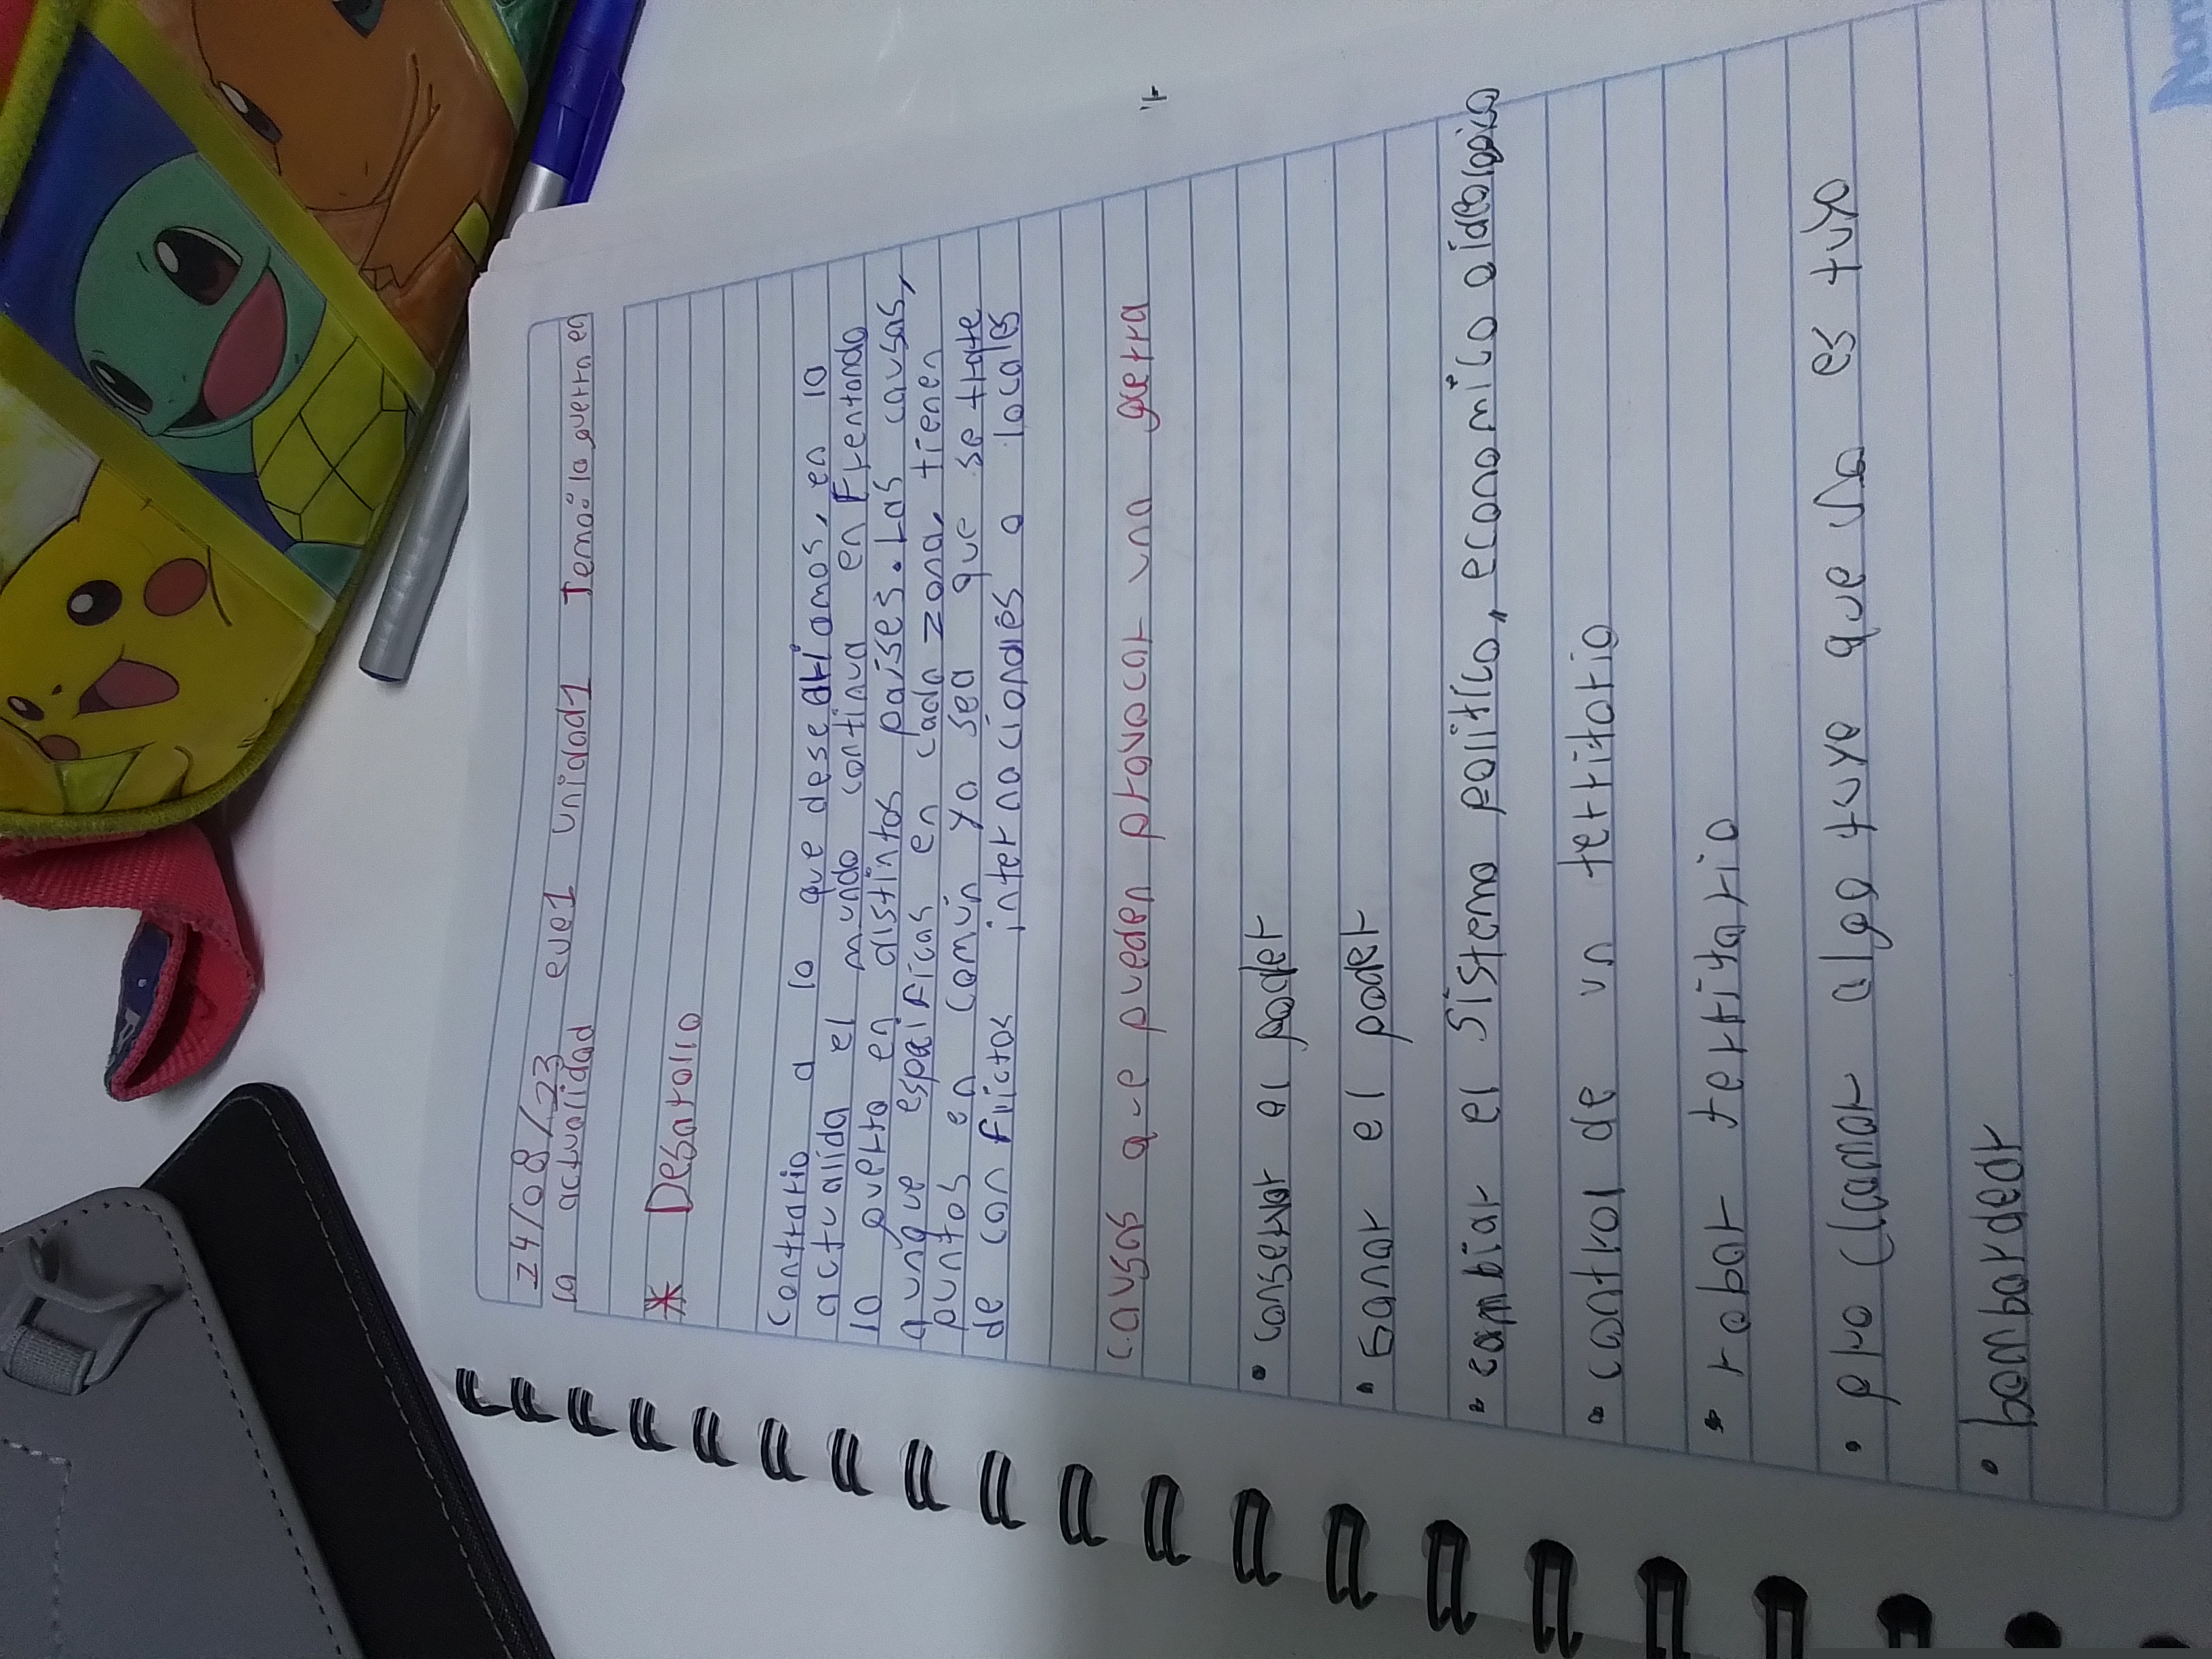 24/08/23 eve1 unidad1 Tema: la guerra en
la actualidad
* Desarollo
Contrario a lo que desearíamos, en la
actualida el mundo continua en Frentando
la guerra en distintos países. Las causas,
aunque espaiFicas en cada zona, tienen
puntos en común ya sea que se trate
de conflictos internacionales o locales
causas q-e pueden provocar una guerra
• conservar el poder
• Ganar el poder
• cambiar el sistema politico, economico o idiologico
• control de un territorio
• robar territorio
• pro clamar algo tuyo que no es tuyo